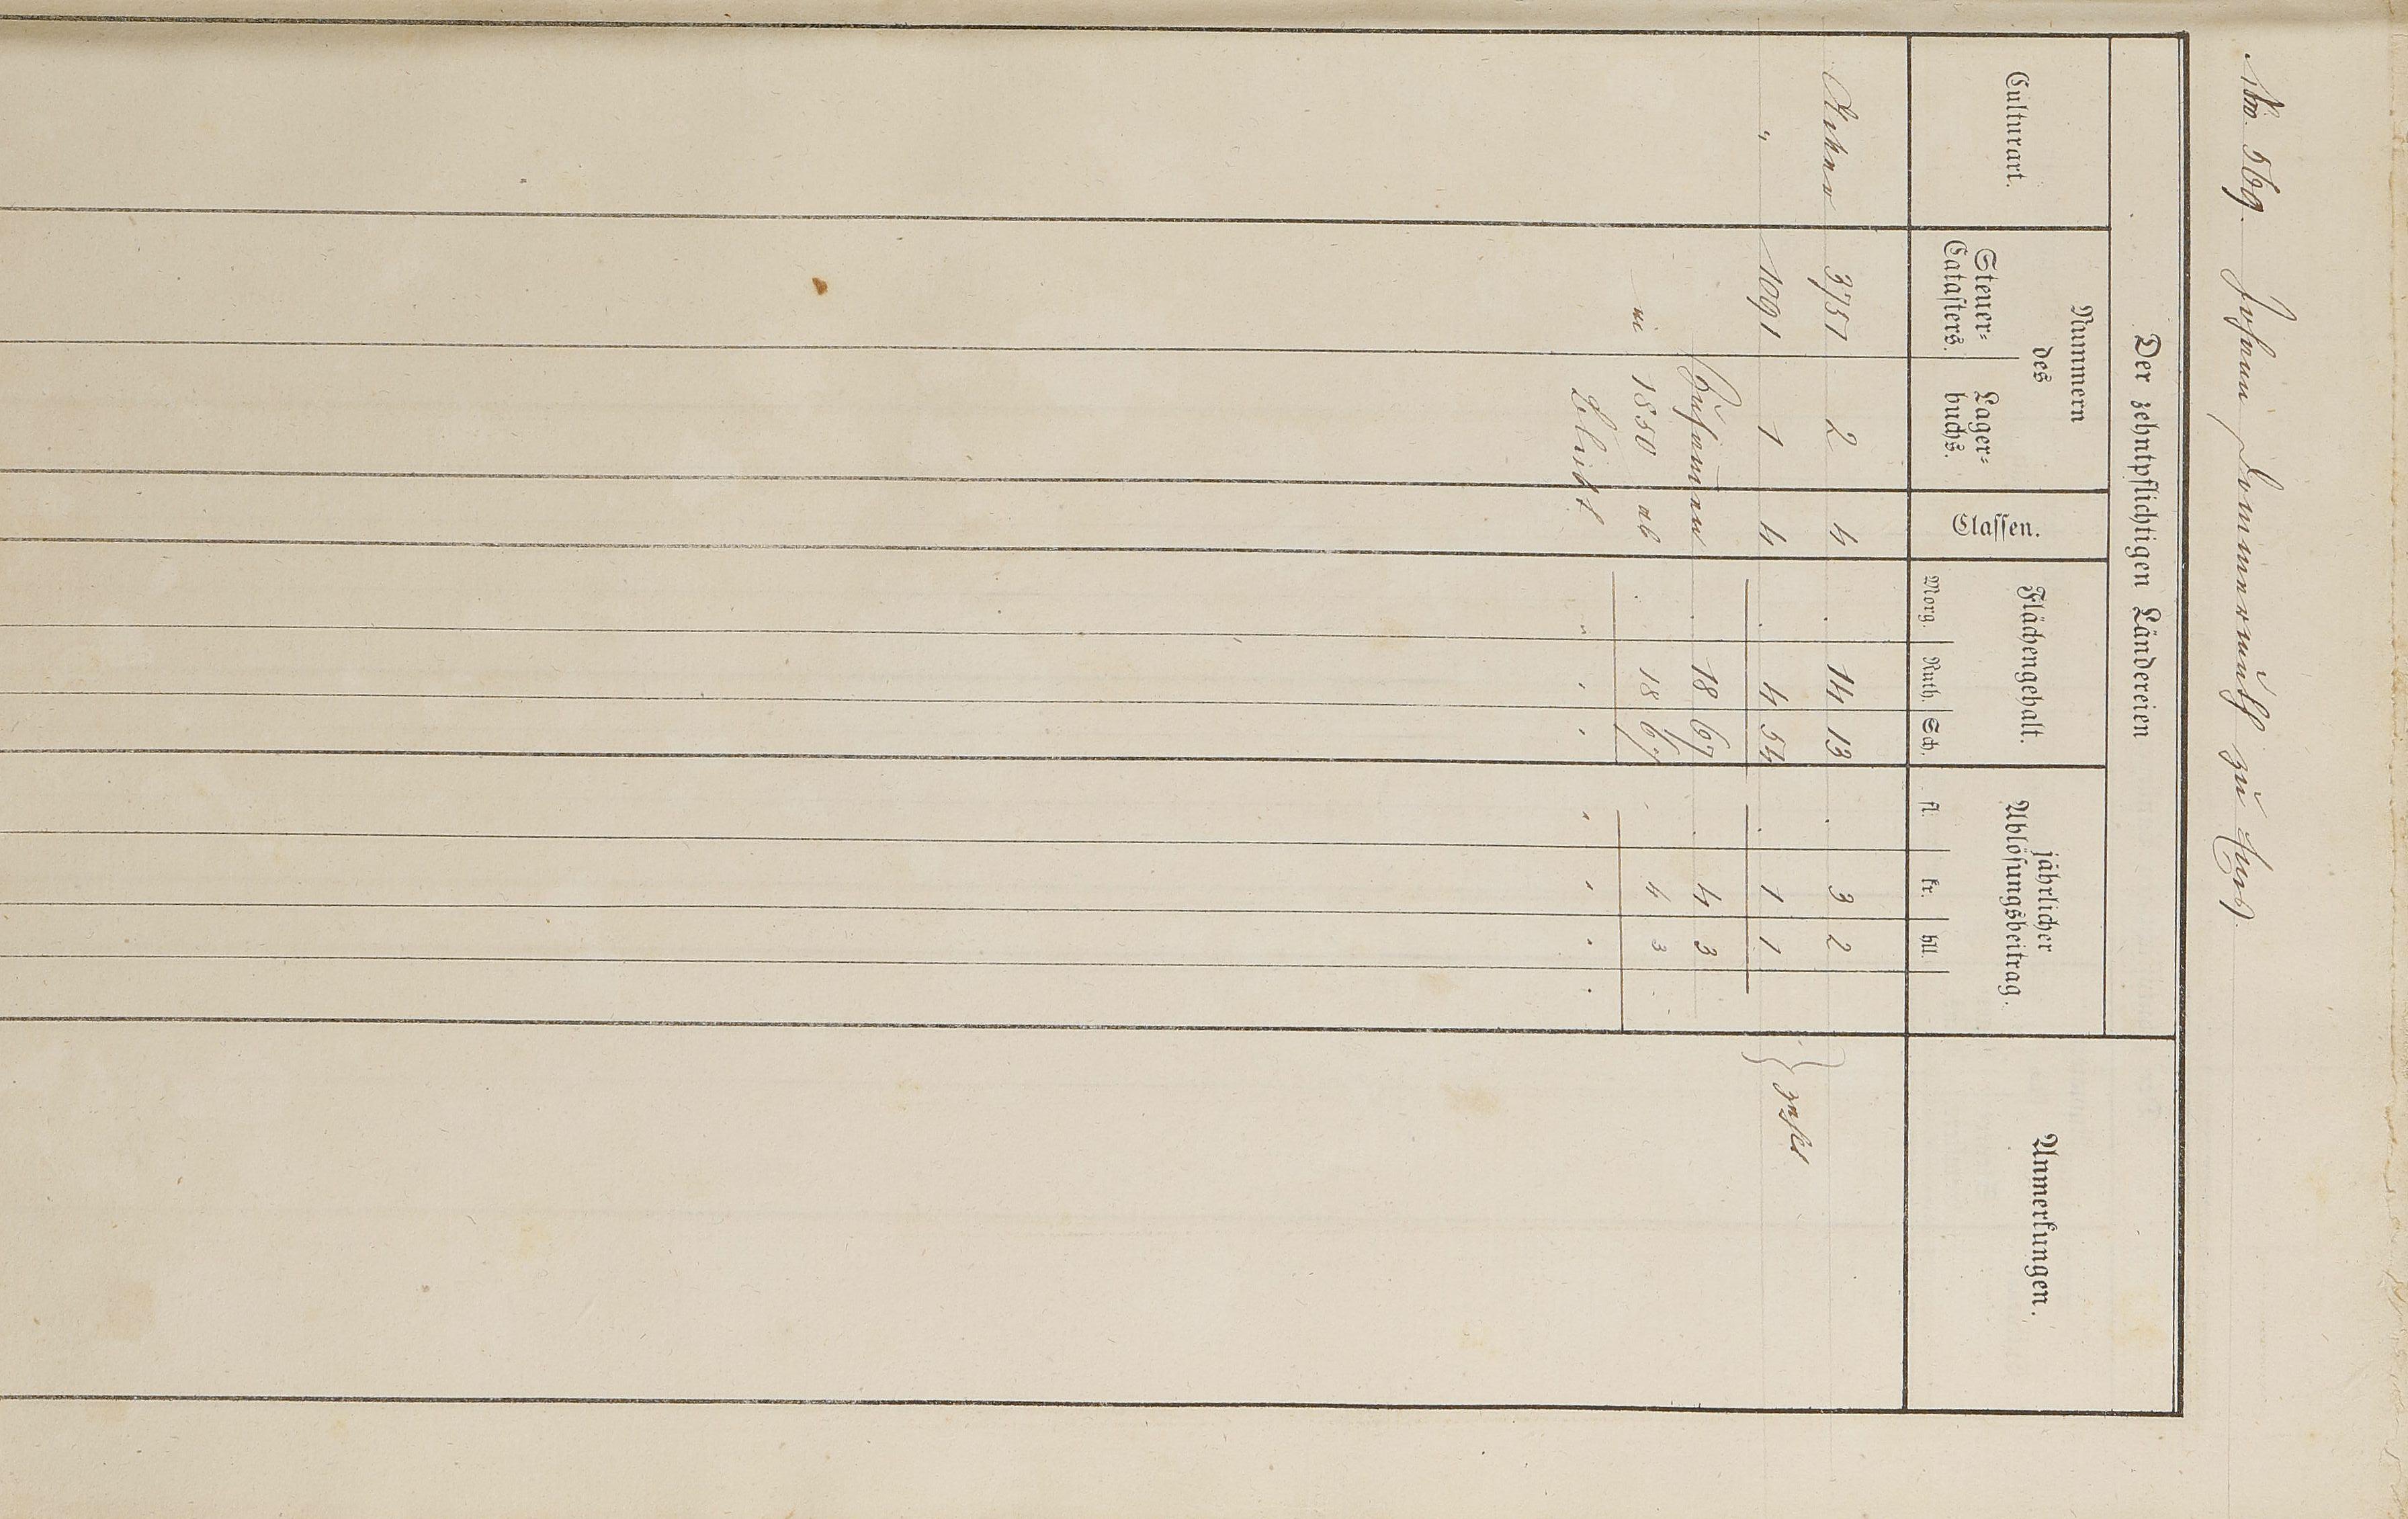 Nro. 569. Johann Dommermuth zu Aurb.
Der zehntpflichtigen Ländereien
Culturart.
Nummern
des
Steuer-
Catasters.
Lager-
buchs.
Classen.
Flächengehalt.
Morg. Ruth. Sch.
jährlicher
Ablösungsbeitrag.
fl. kr. hll.
Anmerkungen.
Acker 3757 2 4 . 14 13 . 3 2
" 1091 1 4 . 4 54 . 1 1
} zahlt
Zusammen . 18 67 . 4 3
in 1850 ab . 18 67 . 4 3
Bleibt " " " " " " "